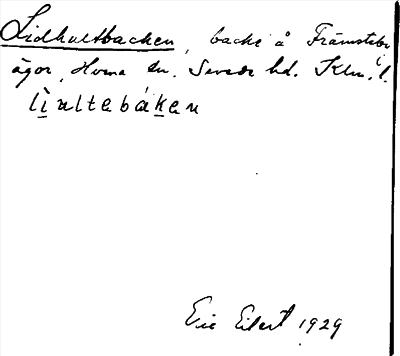 Lidhultbacken, backe å Främsteby
ägor, Hvena sn. Sevede hd. Klm. l.
lìnltebáken
Eric Eilert 1929